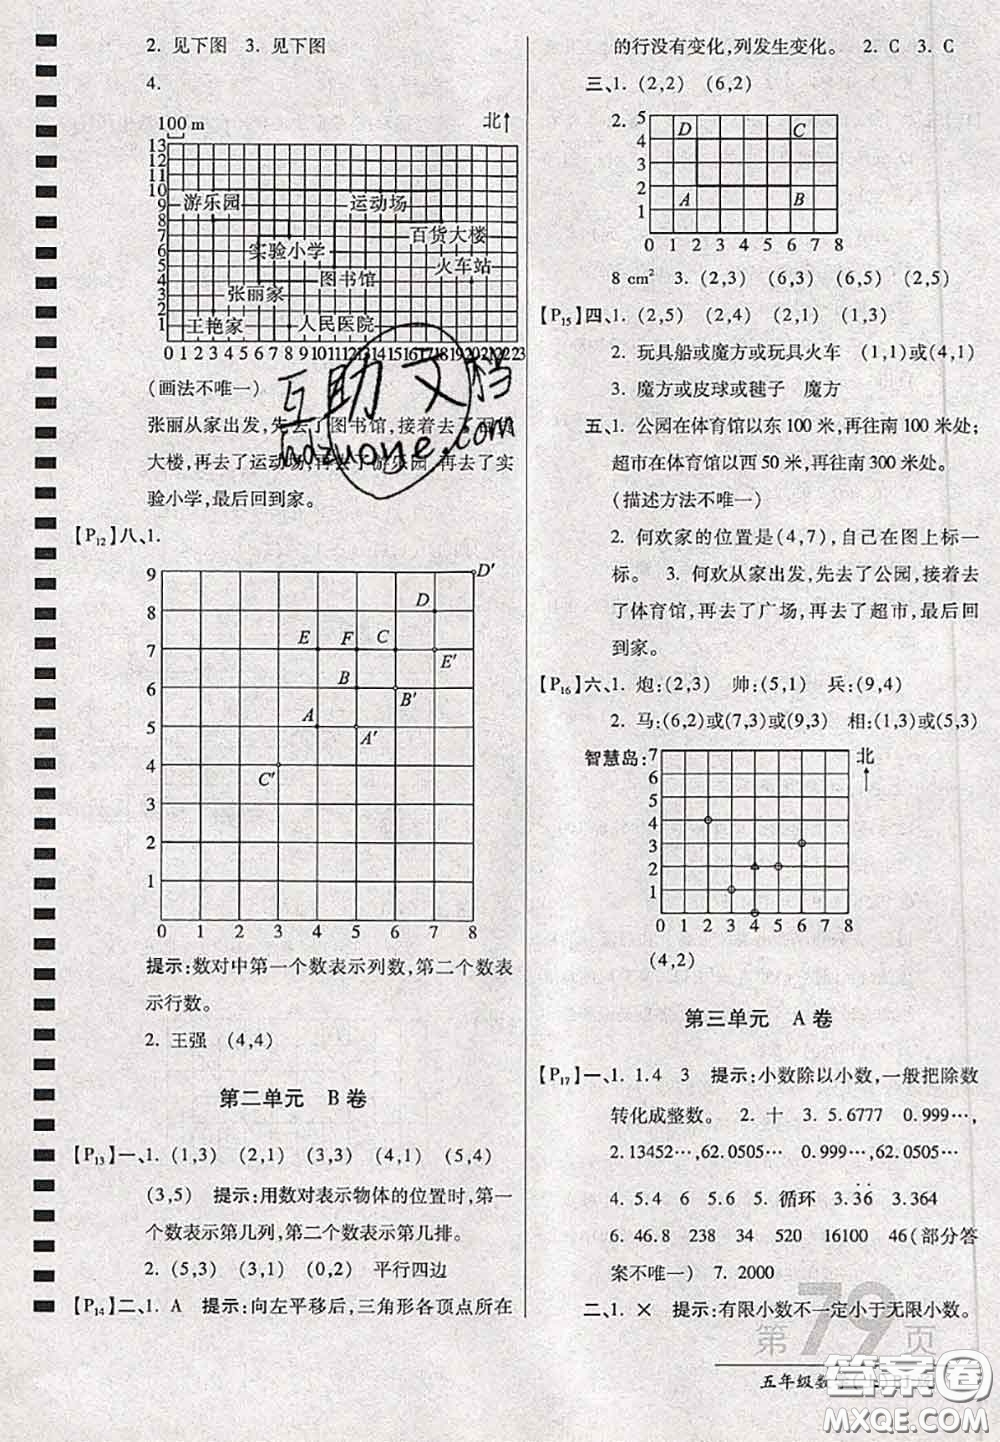 2. 见下图　3. 见下图
4.
100 m
北↑
13
12
11
10
9
8
7
6
5
4
3
2
1
游乐园
运动场
百货大楼
实验小学
火车站
图书馆
张丽家
王艳家
人民医院
0 1 2 3 4 5 6 7 8 9 10 11 12 13 14 15 16 17 18 19 20 21 22 23
(画法不唯一)
张丽从家出发,先去了图书馆,接着去了百货
大楼,再去了运动场,再去了游乐园,再去了实
验小学,最后回到家。
【P12】八、1.
9
8
7
6
5
4
3
2
1
D′
D
E
F
C
E′
B
B′
A
A′
C′
0 1 2 3 4 5 6 7 8
提示:数对中第一个数表示列数,第二个数表
示行数。
2. 王强　(4,4)
第二单元　B 卷
【P13】一、1. (1,3)　(2,1)　(3,3)　(4,1)　(5,4)
(3,5)　提示:用数对表示物体的位置时,第一
个数表示第几列,第二个数表示第几排。
2. (5,3)　(3,1)　(0,2)　平行四边
【P14】二、1. A　提示:向左平移后,三角形各顶点所在
的行没有变化,列发生变化。　2. C　3. C
三、1. (2,2)　(6,2)
2.
5
4
3
2
1
D
C
A
B
0 1 2 3 4 5 6 7 8
8 cm²　3. (2,3)　(6,3)　(6,5)　(2,5)
【P15】四、1. (2,5)　(2,4)　(2,1)　(1,3)
2. 玩具船或魔方或玩具火车　(1,1)或(4,1)
3. 魔方或皮球或毽子　魔方
五、1. 公园在体育馆以东 100 米,再往南 100 米处;
超市在体育馆以西 50 米,再往南 300 米处。
(描述方法不唯一)
2. 何欢家的位置是(4,7),自己在图上标一
标。　3. 何欢从家出发,先去了公园,接着去
了体育馆,再去了广场,再去了超市,最后回
到家。
【P16】六、1. 炮:(2,3)　帅:(5,1)　兵:(9,4)
2. 马:(6,2)或(7,3)或(9,3)　相:(1,3)或(5,3)
智慧岛:
7
6
5
4
3
2
1
北
0 1 2 3 4 5 6 7 8
(4,2)
第三单元　A 卷
【P17】一、1. 1.4　3　提示:小数除以小数,一般把除数
转化成整数。　2. 十　3. 5.6777　0.999…,
2.13452…,62.0505…　0.999…,62.0505…
4. 5.4　5.6　5. 循环　3.3̇6̇　3.364
6. 46.8　238　34　520　16100　46(部分答
案不唯一)　7. 2000
二、1. ×　提示:有限小数不一定小于无限小数。
第79页
五年级数
互助文档
hdzuoye.com
答案卷
MXQE.COM